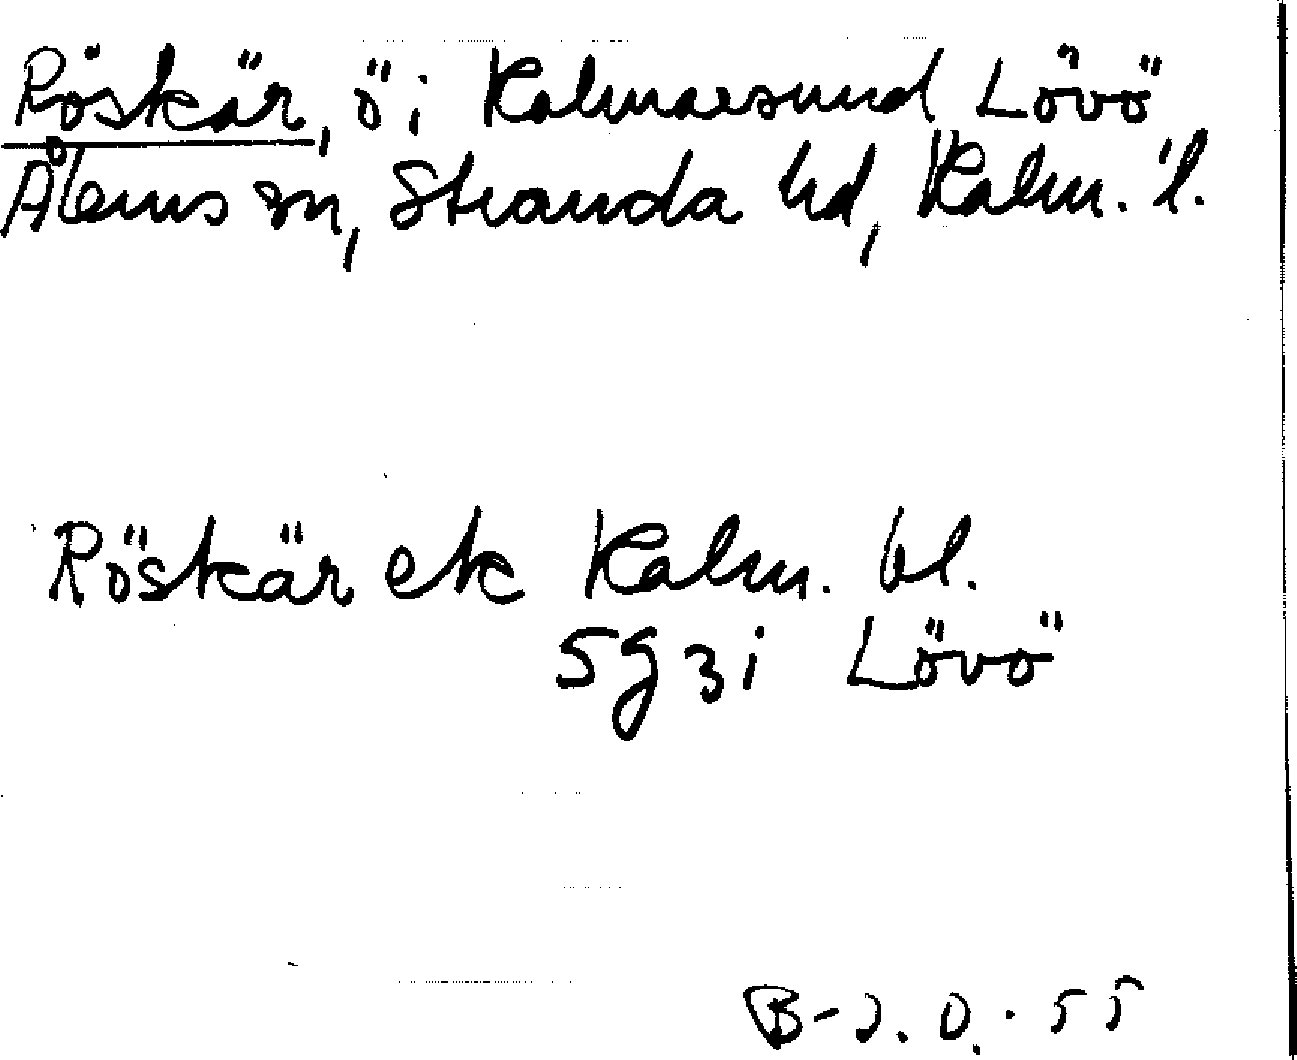 Röskär, ö i Kalmarsund Lövö
Ålems sn, Stranda hd, Kalm. l.
Röskär ek Kalm. bl.
5g3i Lövö
B-J.O. 55